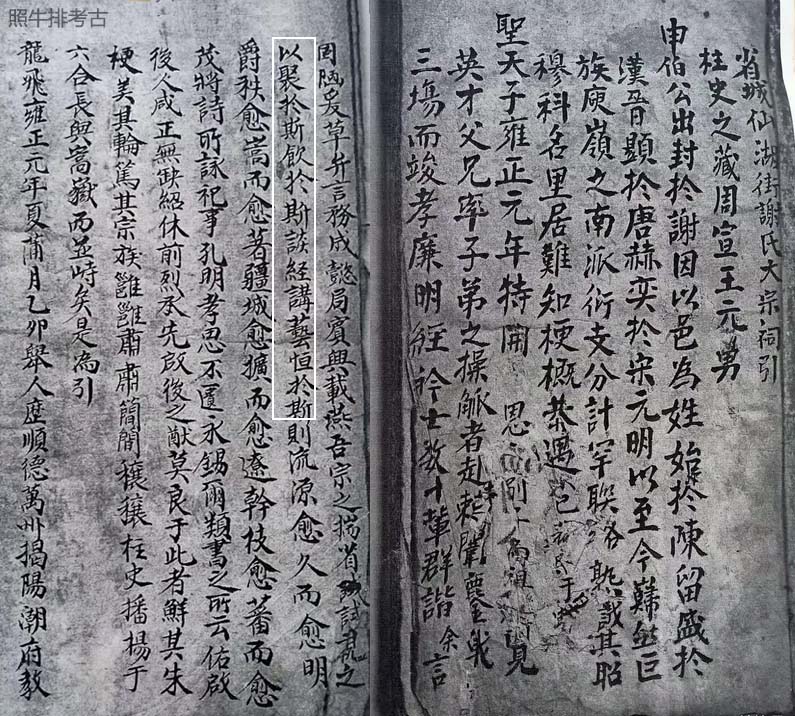 照牛排考古
省城仙湖街謝氏大宗祠引
柱史之藏周宣王元舅
申伯公出封於謝因以邑為姓始於陳留盛於
漢晉顯於唐赫奕於宋元明以至今歸然巨
族庾嶺之南派衍支分計罕聯絡熟識其昭
穆科名里居難知梗概恭遇
聖天子雍正元年特開 恩
英才父兄率子弟之操觚者赴棘闈鏖戰
三場而竣孝廉明經衿士數十輩群諧余言
爰草弁言務成懿局賓興載燕吾宗之
以聚於斯飲於斯談經講藝恒於斯則流源愈久而愈明
爵秩愈嵩而愈著疆城愈擴而愈遼幹枝愈蕃而愈
茂將詩所詠祀事孔明孝思不匱永錫爾類書之所云佑啟
後人咸正無缺紹休前烈承先啟後之猷莫良于此者鮮其朱
梗美其輪篤其宗族雝雝肅肅簡簡穰穰柱史播揚于
六合長與嵩嶽而並峙矣是為引
龍飛雍正元年夏蒲月乙卯舉人歷順德萬州揭陽潮府教